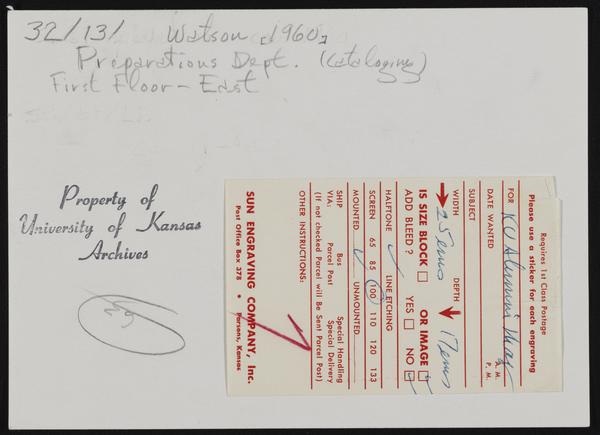 32/13/ Watson [1960]
Preparations Dept. (Cataloging)
First Floor - East
Property of
University of Kansas
Archives
Requires 1st Class Postage
Please use a sticker for each engraving
FOR KU Alumni Mag
DATE WANTED A. M. P. M.
SUBJECT
WIDTH 25 ems DEPTH 17 ems
IS SIZE BLOCK OR IMAGE
ADD BLEED? YES NO
HALFTONE LINE ETCHING
SCREEN 65 85 100 110 120 133
MOUNTED UNMOUNTED
SHIP Bus Special Handling
VIA: Parcel Post Special Delivery
(If not checked Parcel will Be Sent Parcel Post)
OTHER INSTRUCTIONS:
SUN ENGRAVING COMPANY, Inc.
Post Office Box 378 • Parsons, Kansas